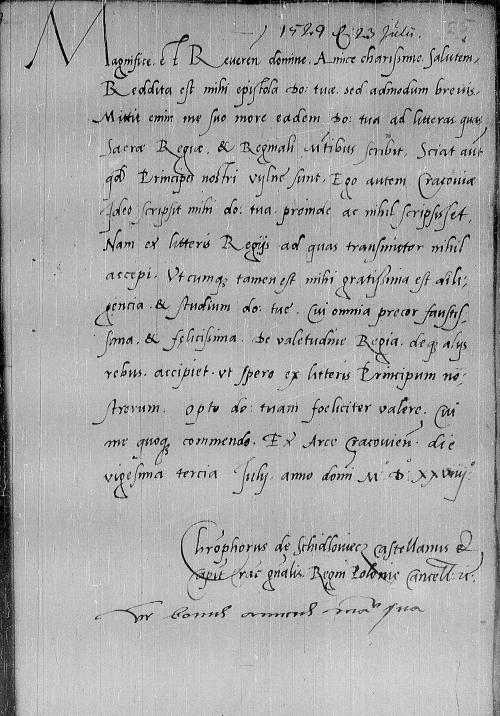 1529 23 Julii.
Magnifice et Reveren domine. Amice charissime salutem.
Reddita est mihi epistola Do: tuæ. sed admodum brevis.
Mittit enim me suo more eadem Do: tua ad litteras quas
Sacræ Regiæ. & Reginali Mtibus scribit. Sciat aut
qd Principes nostri Vylne sunt. Ego autem Cracoviæ
Ideo scripsit mihi do: tua. proinde ac nihil scripsisset.
Nam ex litteris Regijs ad quas transmittor nihil
accepi. Utcumqz tamen est mihi gratissima est dili-
gencia. & studium do: tue. Cui omnia precor faustis-
sima. & felicissima. De valetudine Regia. deqz alijs
rebus. accipiet. ut spero ex litteris Principum no-
strorum. Opto do: tuam foeliciter valere. Cui
me quoqz commendo. Ex Arce Cracovien. die
vigesima tercia Julij. anno domi M° D° XXVIIIJ°
Christophorus de Schidloviecz castellanus &
capit crac gnalis. Regni Polonie Cancell. ic.
vr bonus amicus manu sua